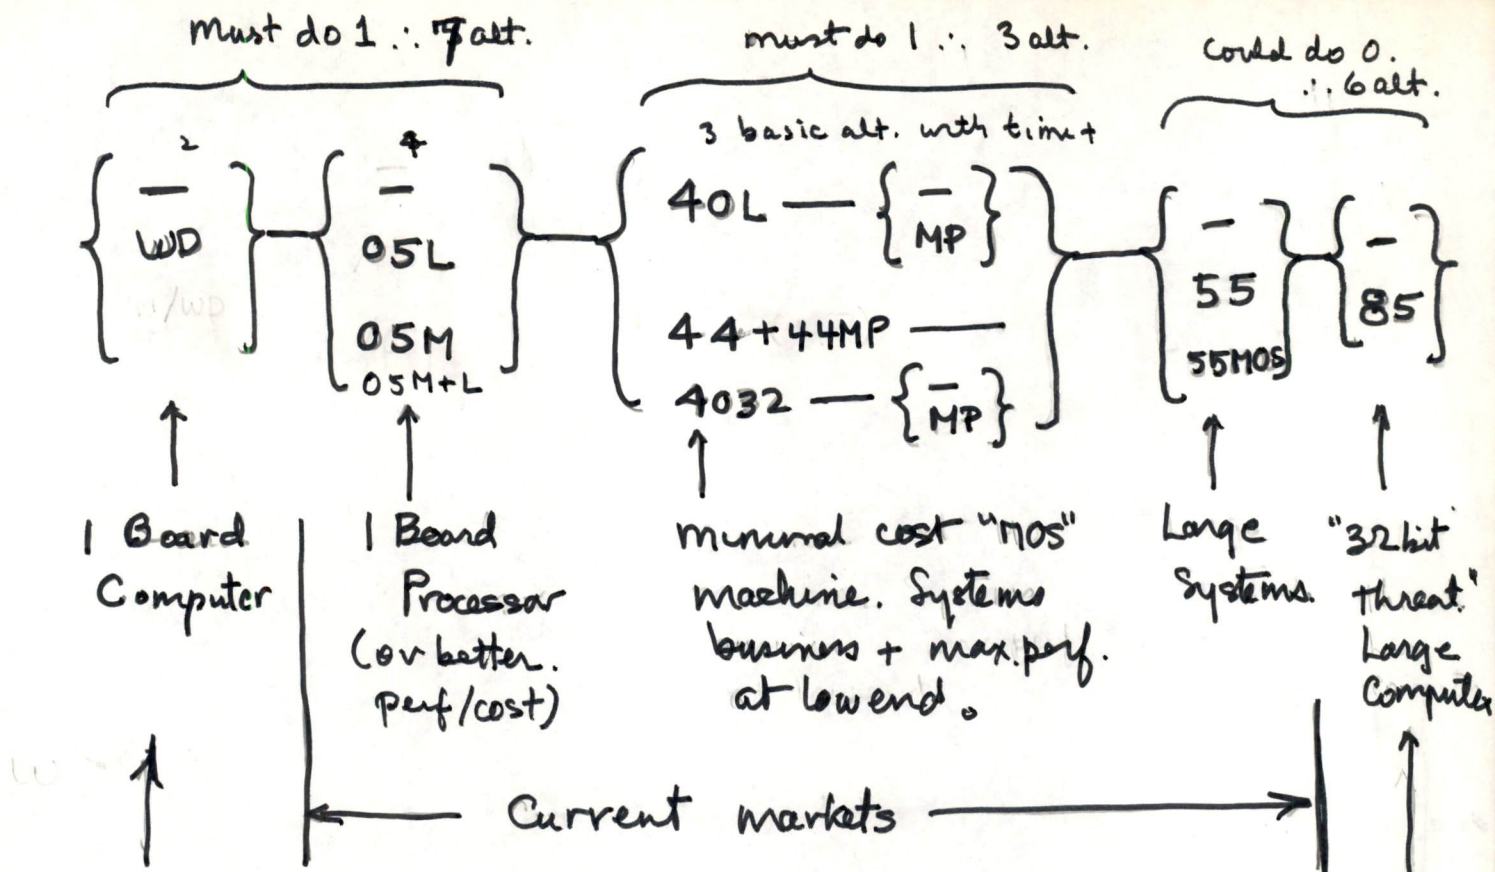 must do 1 ∴ 7 alt.
must do 1 ∴ 3 alt.
could do 0.
∴ 6 alt.
2
4
3 basic alt. with time +
—
WD
—
05L
05M
05M+L
40L — { — MP }
44+44MP —
4032 — { — MP }
—
55
55MOS
—
85
1 Board
Computer
1 Board
Processor
(or better.
perf/cost)
minimal cost "MOS"
machine. Systems
business + max. perf.
at low end.
Large
Systems.
"32 bit
threat."
Large
Computer
Current markets